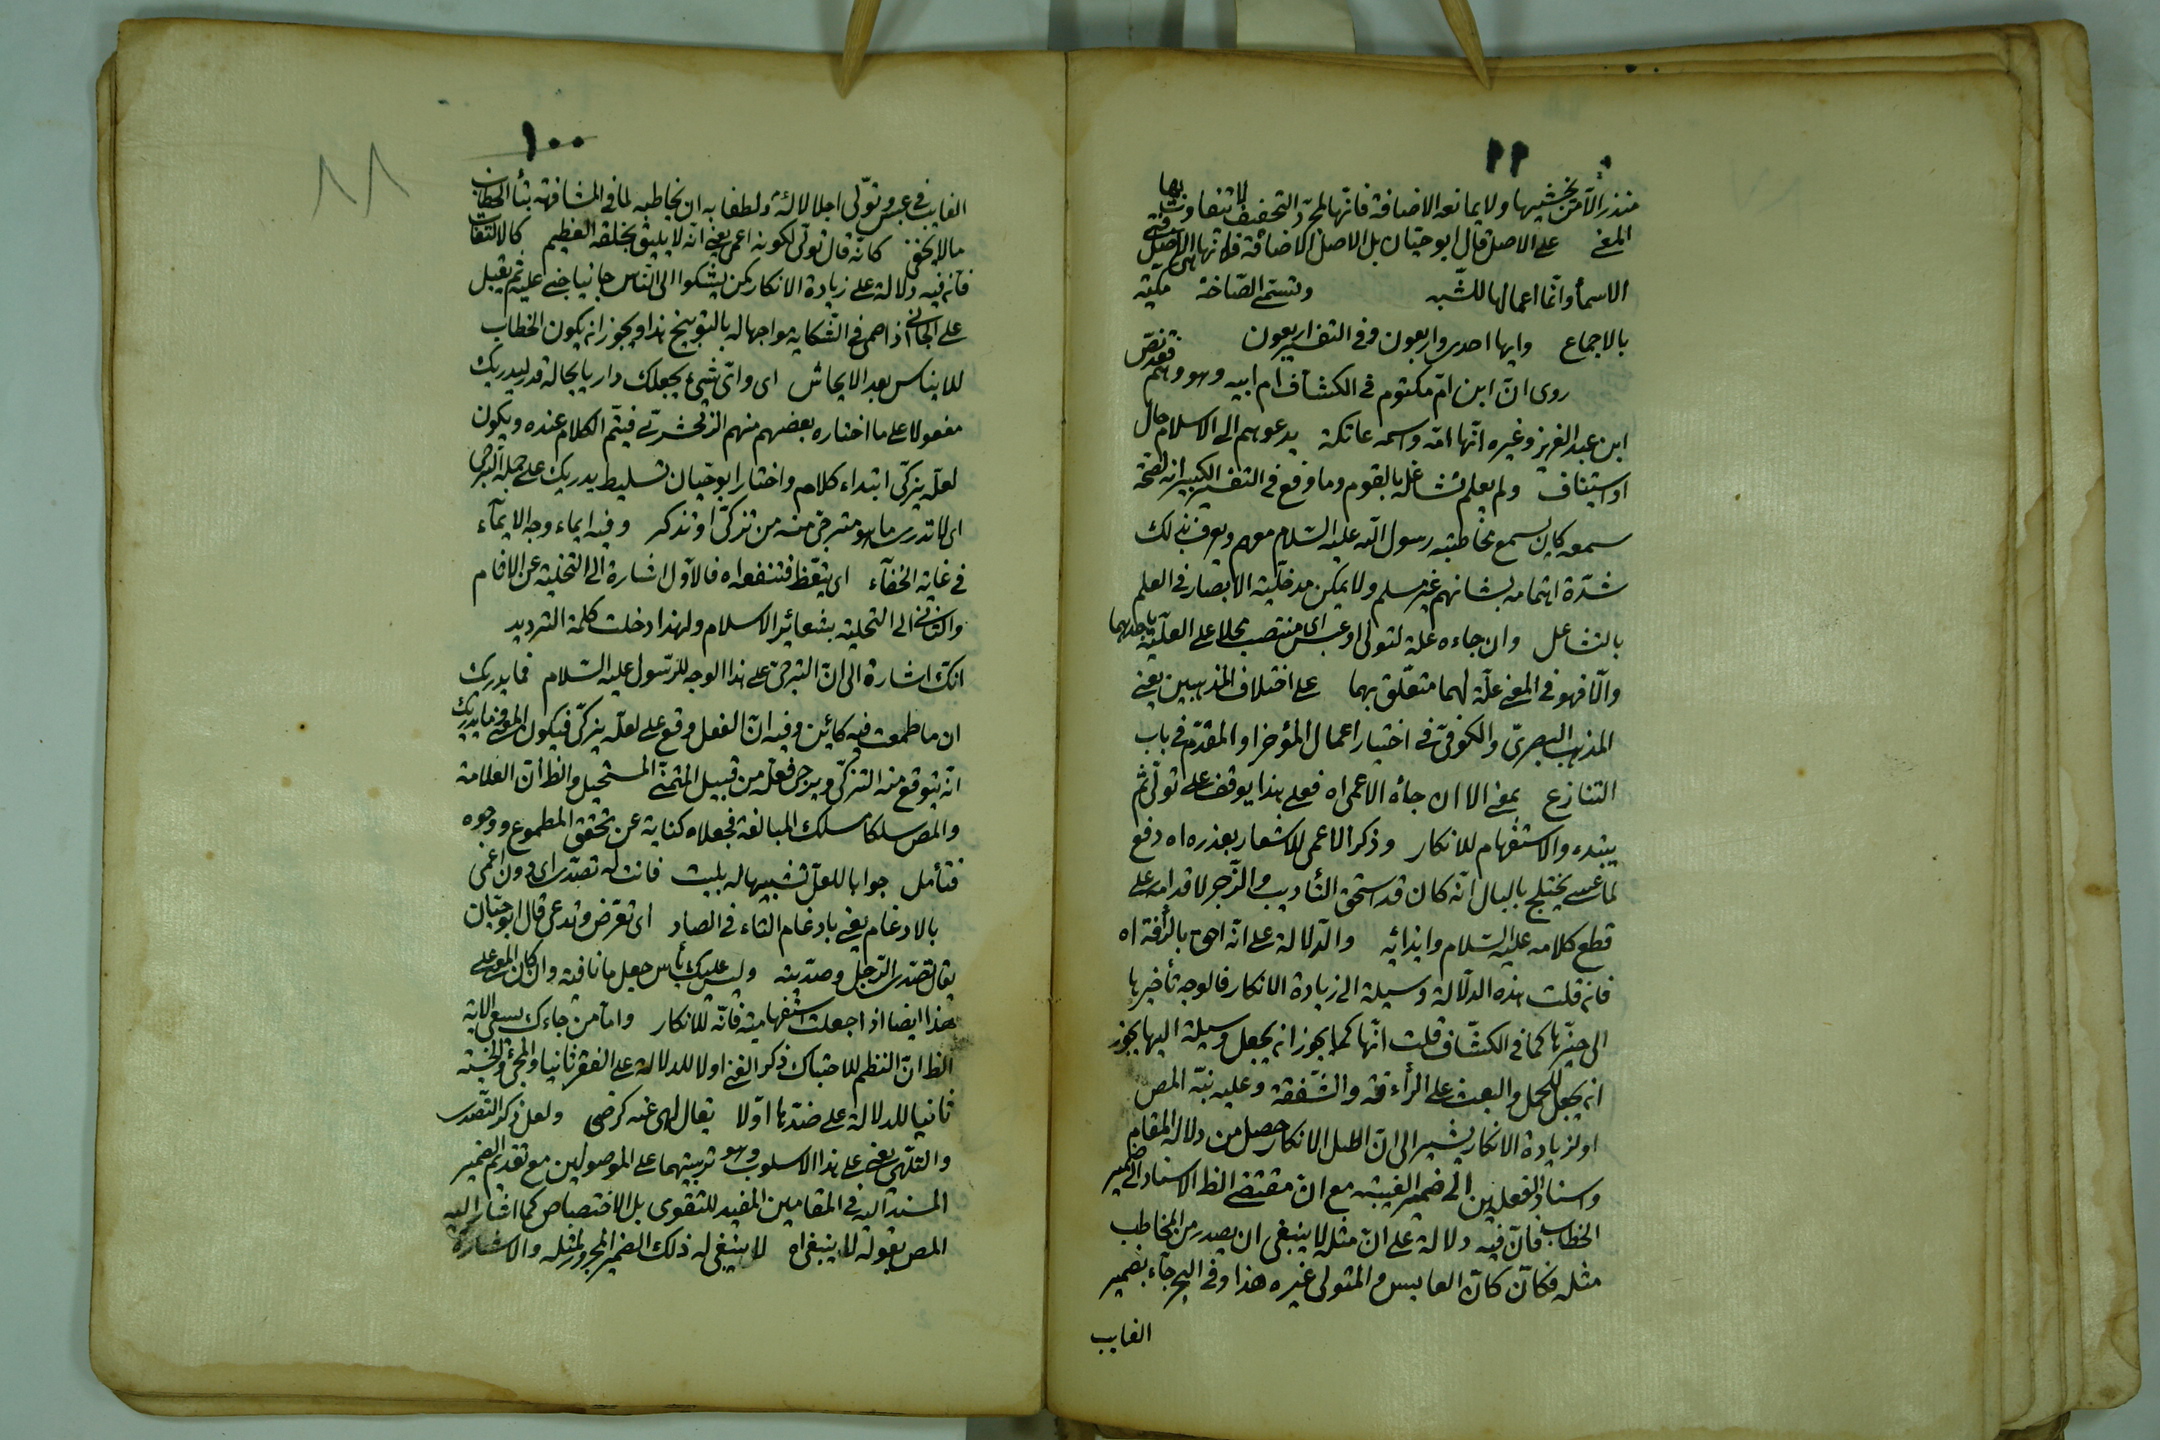 ٩٩
منذر الآمن يخشيها ولا يمانعه الاضافة فانّها لمجرّد التخفيف لا تتفاوت بها
المعنى على الاصل قال ابو حيّان بل الاصل الاضافة فانّها الاصل فى
الاسماء وانّما اعمالها للشّبه وتسمّى الصّاخة مكيّة
بالاجماع وايها احدى واربعون وفى التفسير اربعون
روى انّ ابن امّ مكتوم فى الكشّاف ام ابيه وهو وهم فقد نصّ
ابن عبد العزيز وغيره انّها امّه واسمه عاتكة يدعوهم الى الاسلام حال
او استيناف ولم يعلم تشاغله بالقوم وما وقع فى التفسير الكبير انه لصحّة
سمعه كان يسمع مخاطبته رسول الله عليه السّلام معهم ويعرف بذلك
شدّة اهتمامه بشانهم غير مسلم ولا يمكن مدخليّة الابصار فى العلم
بالتشاغل وان جاءه علة لتولى او عبس اى منتصب محلا على العلّية باحدهما
والّا فهو فى المعنى علّة لهما متعلّق بهما على اختلاف المذهبين يعنى
المذهب البصرىّ والكوفىّ فى اختيار اعمال المؤخر او المقدّم فى باب
التنازع بمعنى الا ان جاءه الاعمى اه فعلى هذا يوقف على تولّى ثم
يبتدء والاستفهام للانكار وذكر الاعمى للاشعار بعذره اه دفع
لما عسى يختلج بالبال انّه كان قد استحق التأديب والزّجر لاقدامه على
قطع كلامه عليه السّلام وايذائه والدّلالة على انّه احق بالرّأفة اه
فان قلت هذه الدلالة وسيلة الى زيادة الانكار فالوجه تأخيرها
الى حيّزها كما فى الكشّاف قلت انّها كما يجوز ان يجعل وسيلة اليها يجوز
ان يجعل للحمل والبعث على الرأفة والشّفقة وعليه نبّه المص
او لزيادة الانكار يشير الى انّ اصل الانكار حصل من دلالة المقام
واسناد الفعلين الى ضمير الغيبة مع انّ مقتضى الظ الاسناد الى ضمير
الخطاب فانّ فيه دلالة على انّ مثله لا ينبغى ان يصدر من المخاطب
مثله فكأنّ كان العابس والمتولى غيره هذا وفى البحر جاء بضمير
الغايب
١٠٠
٨٨
الغايب فى عبس وتولّى اجلالا له ولطفا به ان يخاطبه لما فى المشافهة بتاء الخطاب
ما لا يخفى كانّه قال تولّى لكونه اعمى يعنى انّه لا يليق بخلقه العظيم كالالتفات
فانّ فيه دلالة على زيادة الانكار كمن يشكوا الى النّاس جانيا جنى عليه ثم يقبل
على الجانى اذا حمى فى الشّكاية مواجها له بالتوبيخ هذا ويجوز ان يكون الخطاب
للايناس بعد الايحاش اى واىّ شىء يجعلك داريا بحاله قدر ليدريك
مفعولا على ما اختاره بعضهم منهم الزمخشرىّ فيتم الكلام عنده ويكون
لعلّه يزكّى ابتداء كلام واختار ابو حيّان تسليط يدريك على جملة الترجى
اى لا تدرى ما هو مترجى منه من تزكّى او تذكر وفيه ايماء وجه الايماء
فى غاية الخفاء اى يتّعظ فتنفعه اه فالاول اشارة الى التخلية عن الاثام
والثانى الى التحلية بشعائر الاسلام ولهذا دخلت كلمة الترديد
انك اشارة الى انّ الترجىّ على هذا الوجه للرّسول عليه السّلام فما يدريك
ان ما طمعت فيه كائن وفيه انّ الفعل وقع على لعلّه يزكّى فيكون المعنى ما يدريك
انّه يتوقع منه التزكّى ويرجى فعله من قبيل المتمنّى المستحيل والظ انّ العلامة
والمص سلكا مسلك المبالغة فجعلاه كناية عن تحقق المطموع ووجوه
فتأمل جوابا للعلّ تشبيها له بليت فانت له تصدّى اى دون اعمى
بالادغام يعنى بادغام التاء فى الصاد اى تعرّض وتدعى قال ابو حيّان
يقال تصدى الرّجل وصدّيته وليس عليك بأس جعل ما نافية وان كان المعنى على
هذا ايضا اذا جعلت استفهامية فانّه للانكار وامّا من جاءك يسعى الاية
الظ انّ النظم للاحتباك ذكر الغنى اولا للدلالة على الفقر ثانيا والمجىء والخشية
ثانيا للدلالة على ضدّها اوّلا يقال لهى عنه كرضى ولعل ذكر التصدى
والتلهى يعنى على هذا الاسلوب وهو ترتيبهما على الموصولين مع تقديم الضمير
المسند اليه فى المقامين المفيد للتقوى بل الاختصاص كما اشار اليه
المص بقوله لا ينبغى اه لا ينبغى له ذلك الضمير المجرور لمثله والاشارة